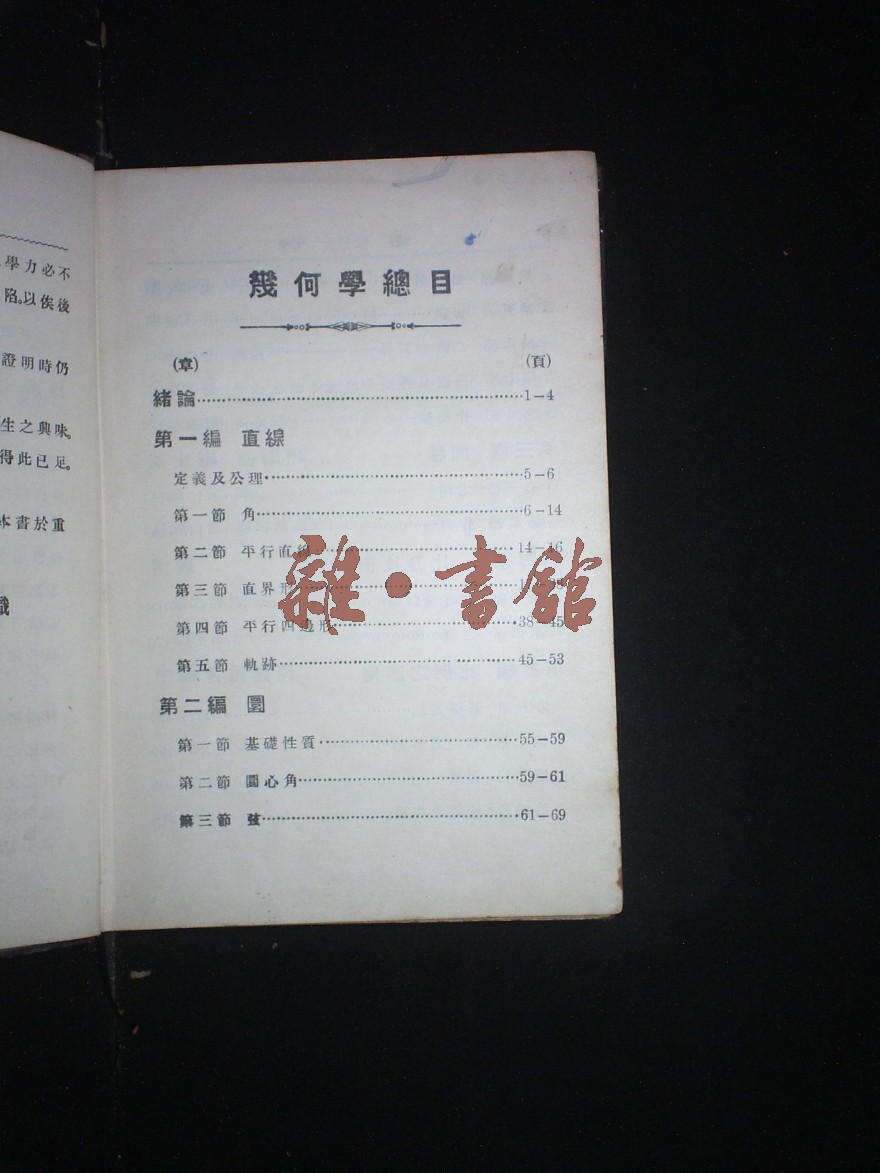 學力必不
陷。以俟後
證明時仍
生之興味。
得此已足。
本書於重
識
幾何學總目
(章) (頁)
緒論 1-4
第一編 直線
定義及公理 5-6
第一節 角 6-14
第二節 平行直線 14-16
第三節 直界形
第四節 平行四邊形 38-45
第五節 軌跡 45-53
第二編 圓
第一節 基礎性質 55-59
第二節 圓心角 59-61
第三節 弦 61-69
雜·書館